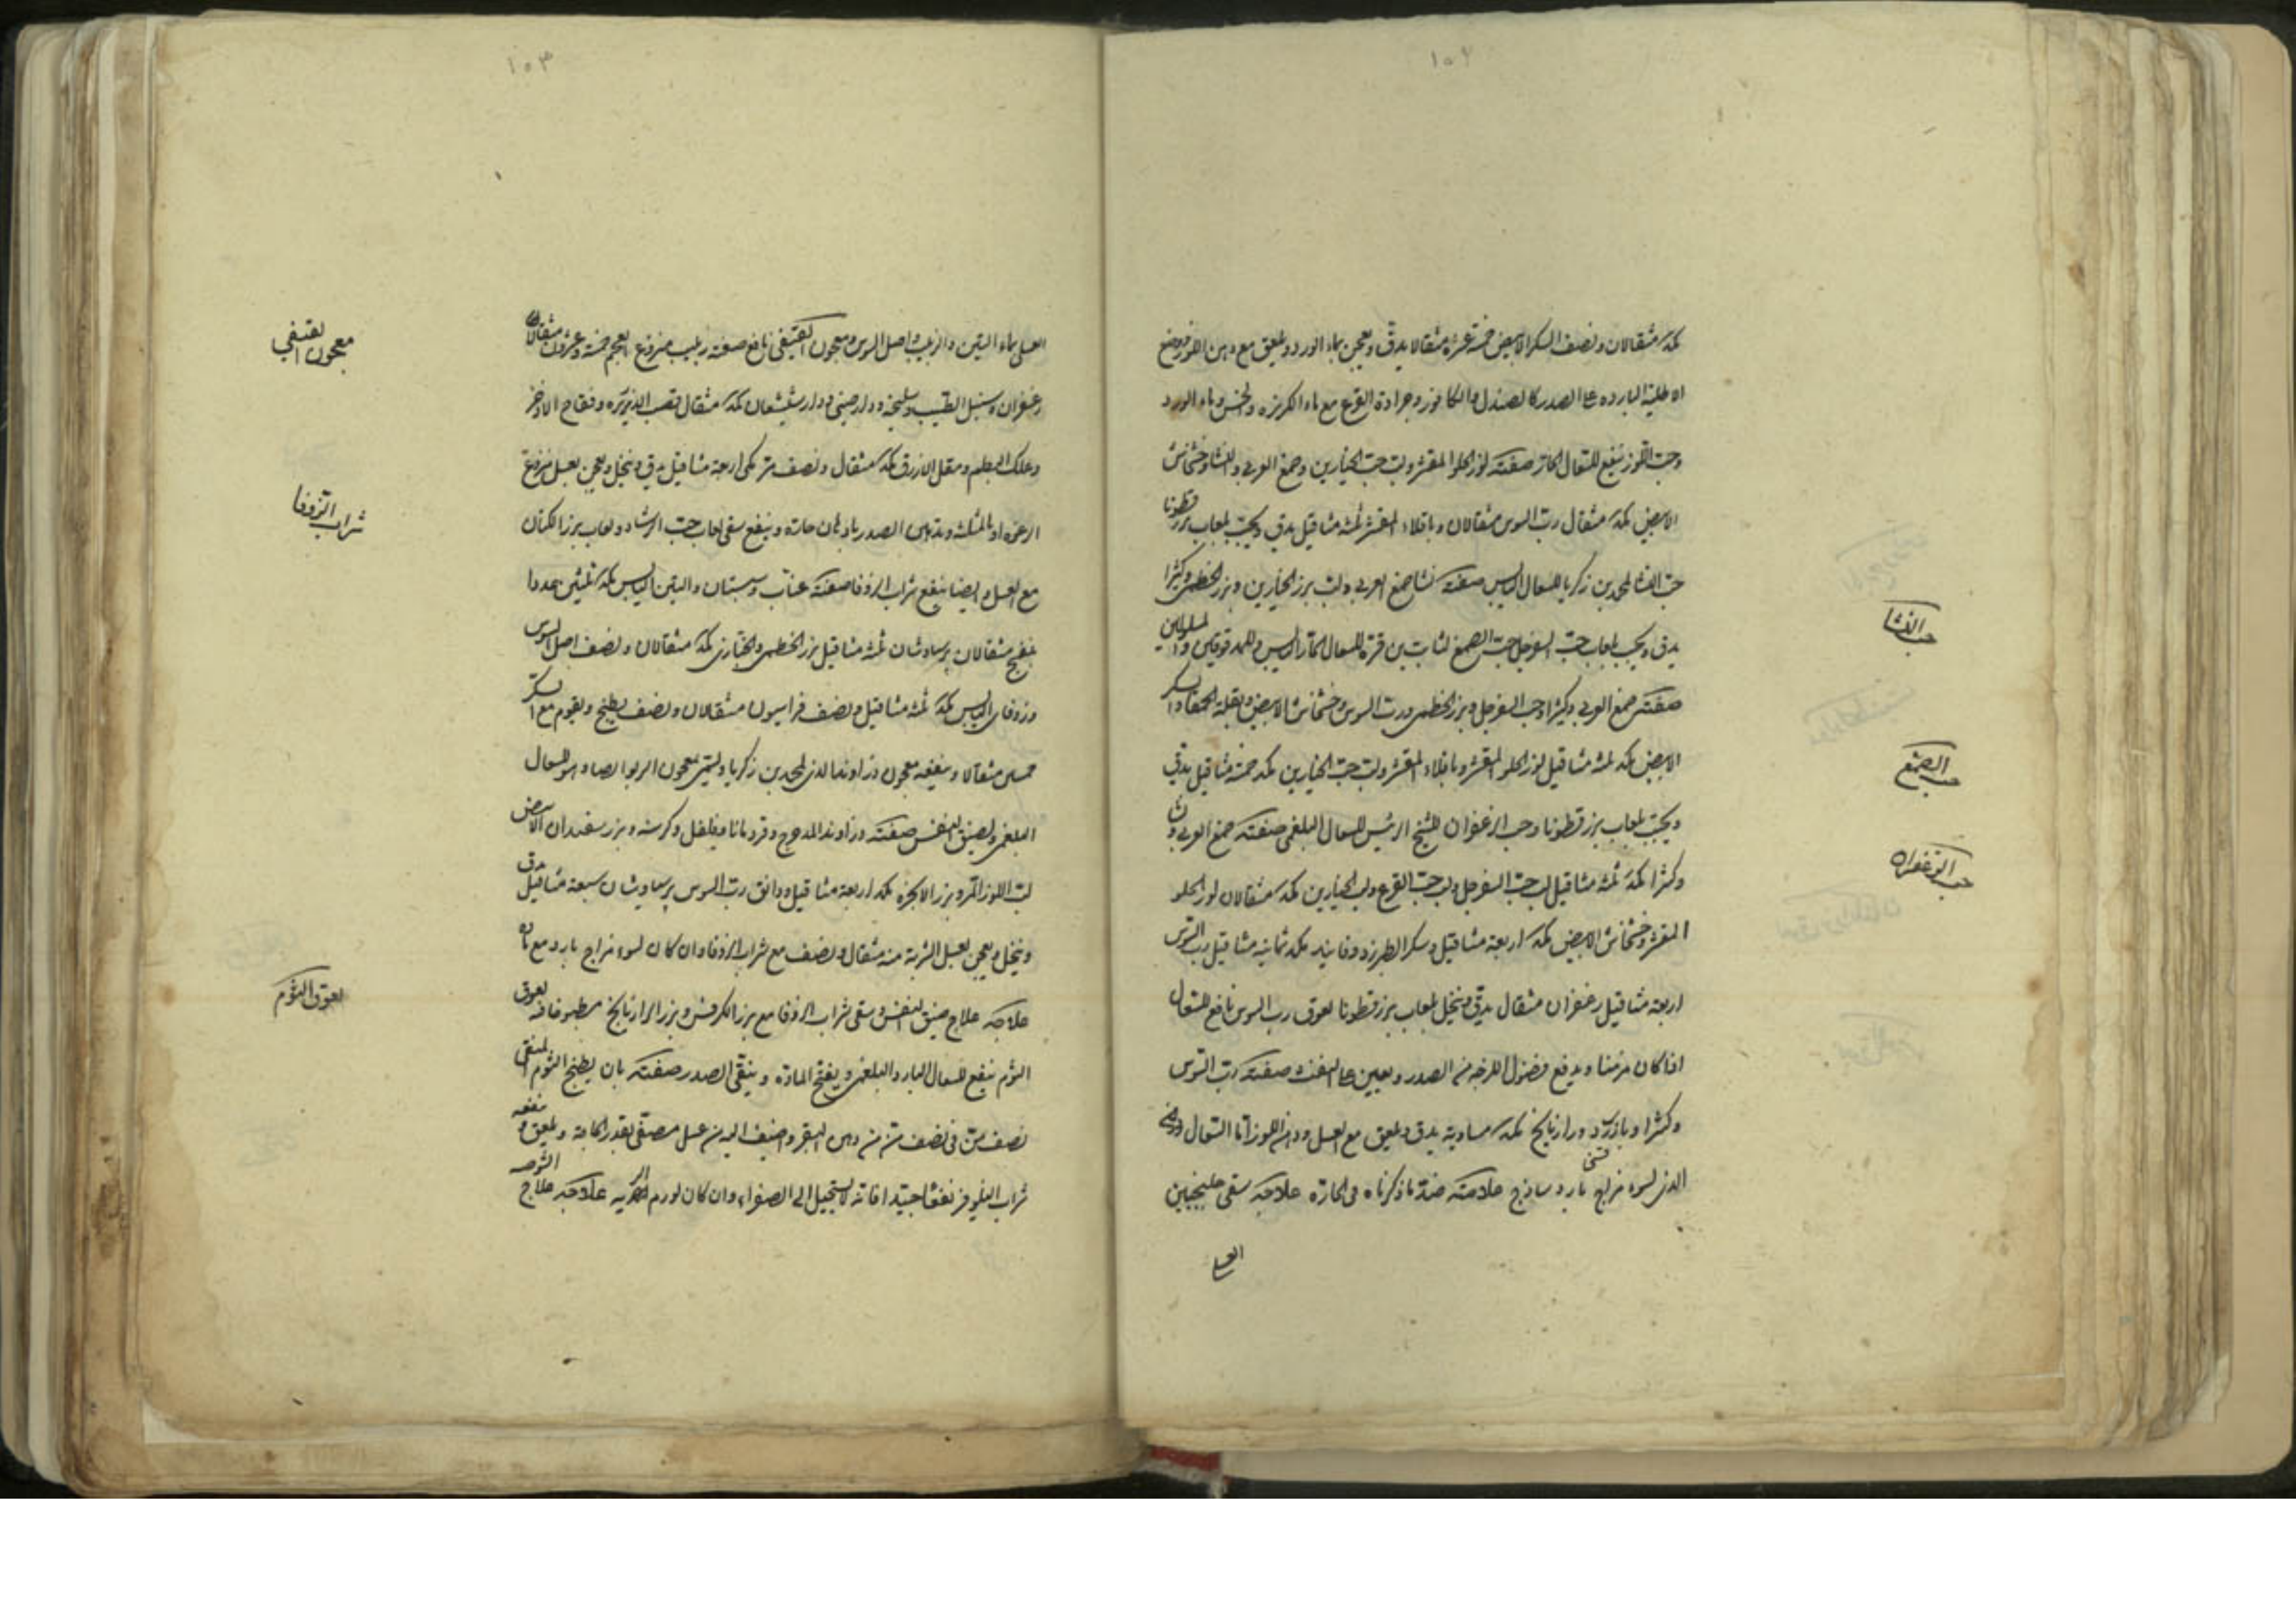 ١٠٢
مكد مثقالان ونصف السكر الابيض خمسة عشرة مثقالا يدق ويعجن بماء الورد ويلعق مع دهن اللوز ووضع
الاطلية الباردة على الصدر كالصندل والكافور وجرادة القرع مع ماء الكزبره والخس وماء الورد
وحب اللوز ينفع للسعال الحار صفته لوز الحلو المقشر ولب حب الخيارين وصمغ العربي والنشا وخشخاش
الابيض مكد مثقال رب السوس مثقالان وباقلاء المقشر ثلثه مثاقيل يدق ويحبب بلعاب بزر قطونا
حب النشا لمحمد بن زكريا للسعال اليابس صفته نشا صمغ العربي ولب بزر الخيارين وبزر الخطمي وكثيرا
يدق ويحبب بلعاب حب السفرجل حب الصمغ لثابت بن قرة للسعال الحار اليابس وللمدقوقين والمسلولين
صفته صمغ العربي وكثيرا وحب السفرجل وبزر الخطمي ورب السوس وخشخاش الابيض وبقلة الحمقا والسكر
الابيض مكد ثلثه مثاقيل لوز الحلو المقشر وباقلاء المقشر ولب حب الخيارين مكد خمسة مثاقيل يدق
ويحبب بلعاب بزر قطونا وحب الزعفران للشيخ الرئيس للسعال البلغمي صفته صمغ العربي ونشا
وكثيرا مكد ثلثه مثاقيل لب حب السفرجل ولب حب القرع ولب الخيارين مكد مثقالان لوز الحلو
المقشر وخشخاش الابيض مكد اربعة مثاقيل وسكر الطبرزد وفانيد مكد ثمانيه مثاقيل رب السوس
اربعة مثاقيل زعفران مثقال يدق وينخل بلعاب بزر قطونا لعوق رب السوس نافع للسعال
اذا كان مزمنا ويدفع فضول اللزجه من الصدر ويعين على النفث صفته رب السوس
وكثيرا وبازرد ورازيانج مكد مساوية يدق ويلعق مع العسل ودهن اللوز اما السعال
الذي لسوء مزاج بارد ساذج علامته ضد ما ذكرناه في الحارة علاجه سقى جلنجبين
العسلي
حب النشا
حب الصمغ
حب الزعفران
١٠٣
العسلى بماء التين والزبيب واصل السوس ومعجون القتيفي نافع صفته زبيب منزوع العجم خمسة وعشرون مثقالا
زعفران وسنبل الطيب وسليخه ودارصيني ودار شيشعان مكد مثقال قصب الذريره وفقاح الاذخر
وعلك البطم ومقل الازرق مكد مثقال ونصف مر مكى اربعة مثاقيل يدق وينخل ويعجن بعسل منزوع
الرغوه او بالمثلث ويدهن الصدر بادهان حارة وينفع سقى لعاب حب الرشاد ولعاب بزر الكتان
مع العسل وايضا ينفع شراب الزوفا صفته عناب وسبستان والتين اليابس مكد ثلثين عددا
بنفسج مثقالان برسياوشان ثلثه مثاقيل بزر الخطمي والخبازى مكد مثقالان ونصف اصل السوس
وزوفاى اليابس مكد ثلثه مثاقيل ونصف فراسيون مثقالان ونصف يطبخ ويقوم مع السكر
خمسين مثقالا وينفعه معجون زراوند الذي لمحمد بن زكريا ويسمى معجون الربو ايضا وهو للسعال
البلغمي ولضيق النفس صفته زراوند المدحرج وقردمانا وفلفل وكرسنه وبزر سفندان الابيض
لب اللوز المر وبزر الانجره مكد اربعة مثاقيل ودانق رب السوس برسياوشان سبعة مثاقيل يدق
وينخل ويعجن بعسل الشربة منه مثقال ونصف مع شراب الزوفا وان كان لسوء مزاج بارد مع مادة
علاجه علاج ضيق النفس وسقى شراب الزوفا مع بزر الكرفس وبزر الرازيانج مطبوخا فيه لعوق
الثوم ينفع للسعال البارد البلغمي وينضج المادة وينقى الصدر صفته بان يطبخ الثوم المنقى
نصف من في نصف من من دهن البقر واضيف اليه من عسل مصفى بقدر الحاجة ويلعق وينفعه
شراب النيلوفر نفعا جيدا فانه لا يستحيل الى الصفراء وان كان لورم الريه علاجه علاج الشوصه
معجون القتيفي
شراب الزوفا
لعوق الثوم